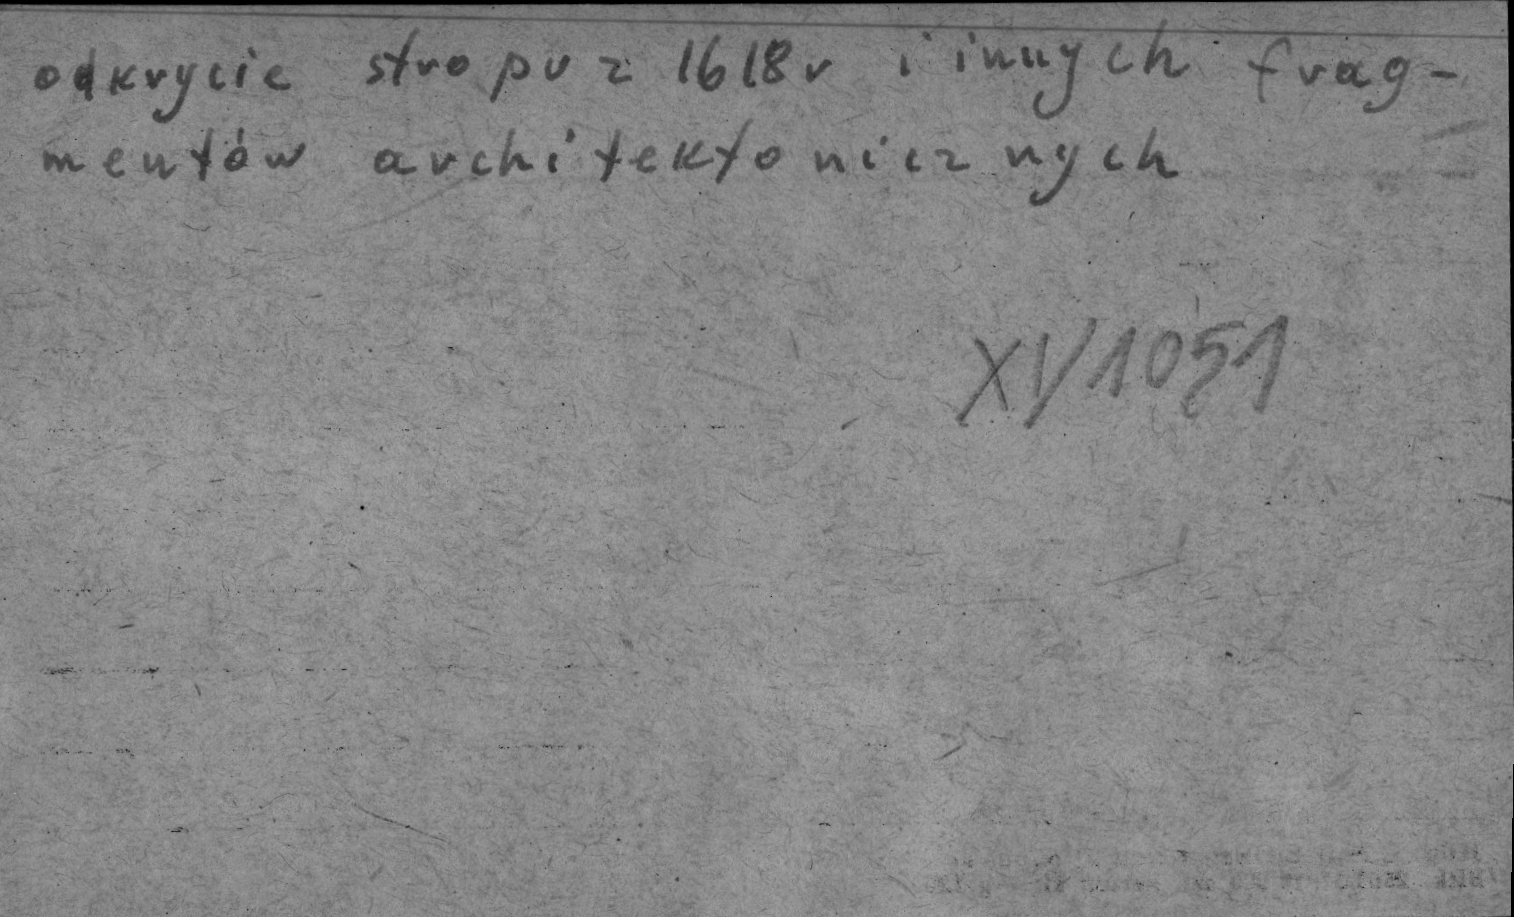 odkrycie stropu z 1618 r i innych frag-
mentów architektonicznych
XV/1051